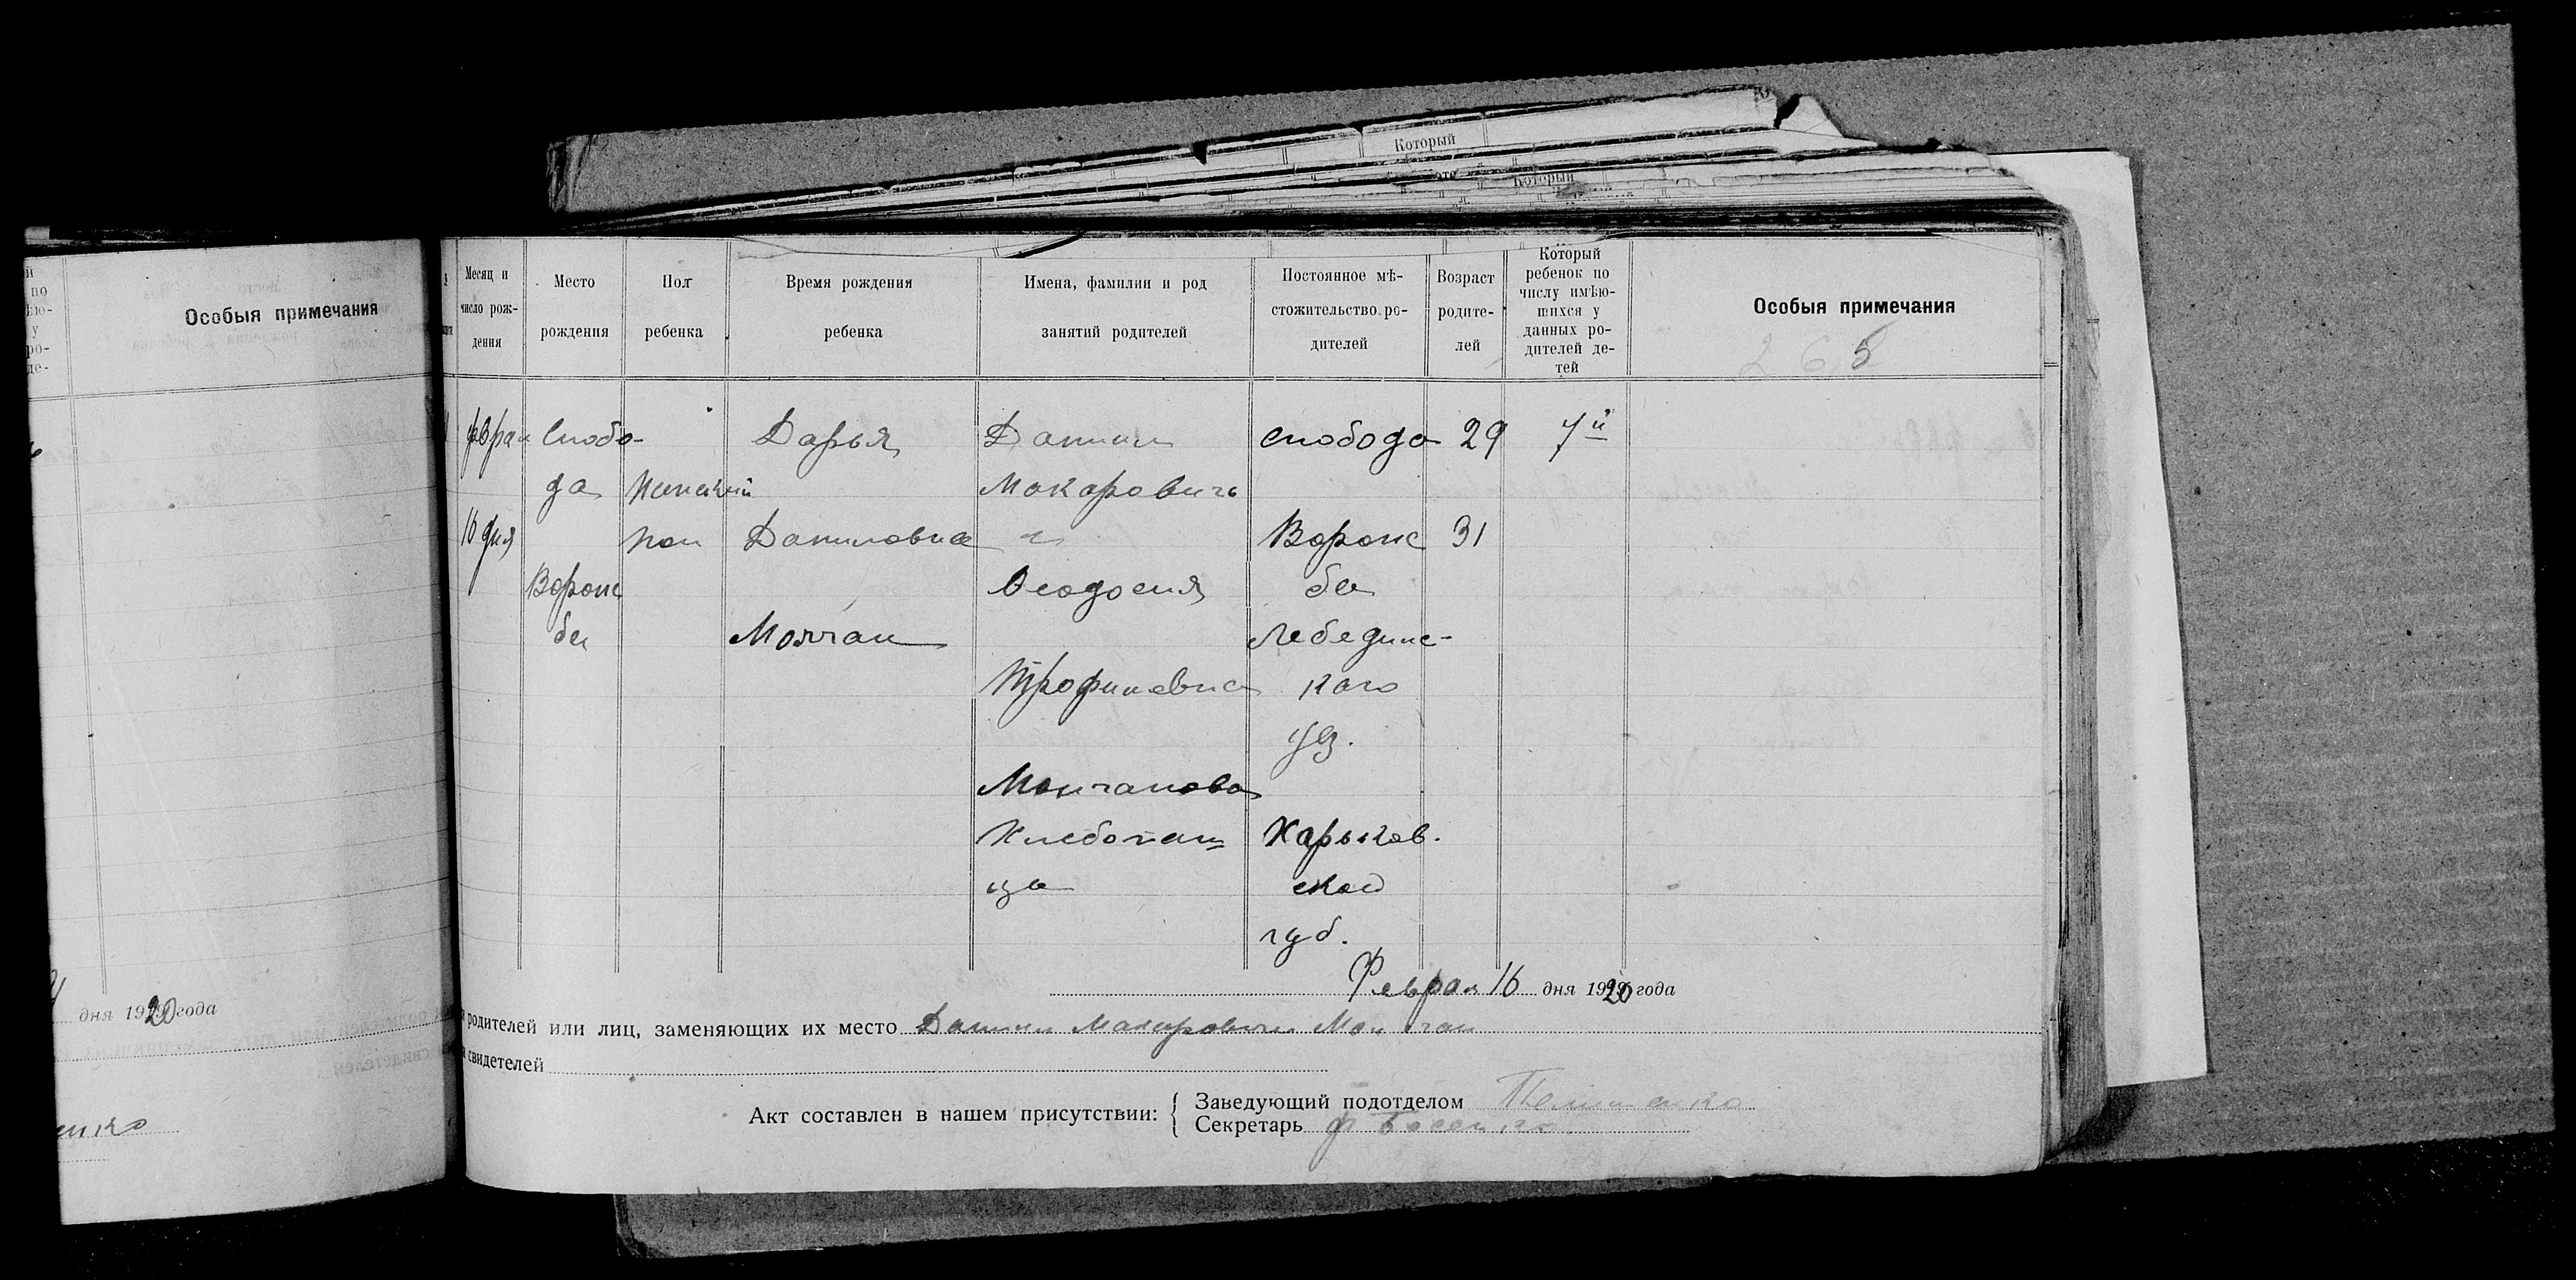 Который
Который
Особыя примечания
Месяц и число рож-
дения
Место
рождения
Пол
ребенка
Время рождения
ребенка
Имена, фамилии и род
занятий родителей
Постоянное мѣ-
стожительство ро-
дителей
Возраст
родите-
лей
Который
ребенок по
числу имѣю-
щихся у
данных ро-
дителей де-
тей
Особыя примечания
265
феврал
10 дня
Слобо-
да
Воронс
ба
Женский
пол
Дарья
Даниловна
Молчан
Даниил
Макарович
и
Феодосия
Трофимовна
Молчанова
Хлебопаш
цы
слобода
Вороже
ба
Лебединс-
каго
уез.
Харьков.
ской
губ.
29
31
7й
Феврал 16 дня 1920 года
дня 1920 года
родителей или лиц, заменяющих их место Даниил Макарович Молчан
свидетелей
Акт составлен в нашем присутствии:
Заведующий подотделом
Секретарь